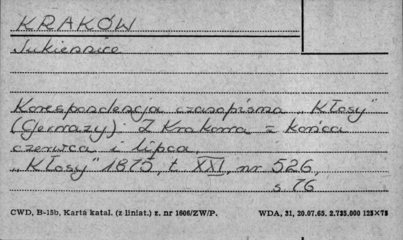 KRAKÓW
Sukiennice
Korespondencja czasopisma „Kłosy"
(Germazy): Z Krakowa z końca
czerwca i lipca.
„Kłosy" 1875, t. XXI, nr 526,
s. 76
CWD, B-15b, Karta katal. (z liniat.) z. nr 1606/ZW/P. WDA, 31, 20.07.65. 2.735.000 125×75